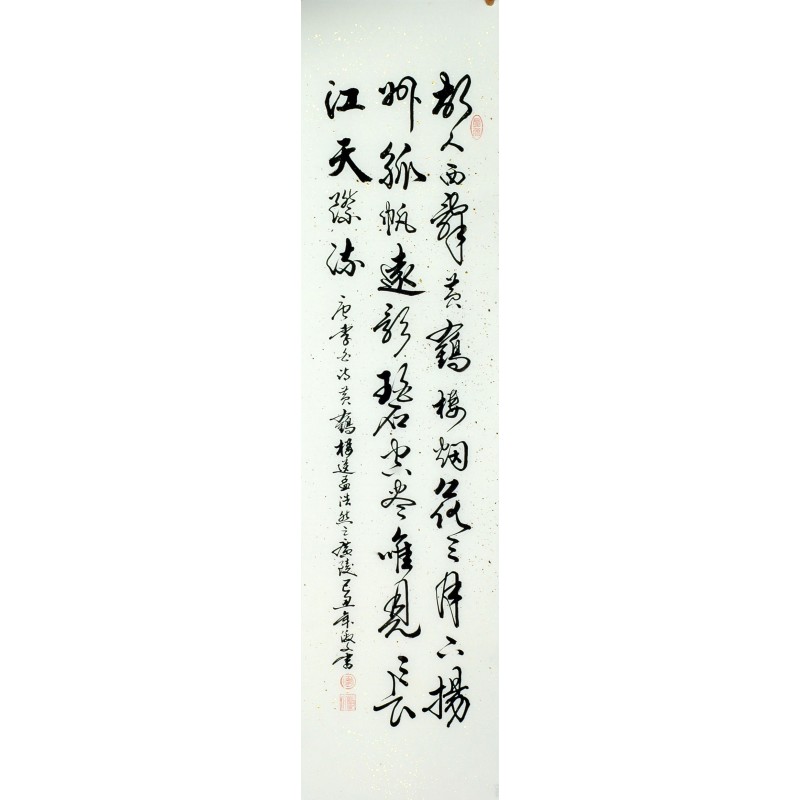 故人西辞黄鶴楼烟花三月下揚
州孤帆遠影碧空尽唯見長
江天際流
唐李白詩黄鶴楼送孟浩然之廣陵己丑年淑文書